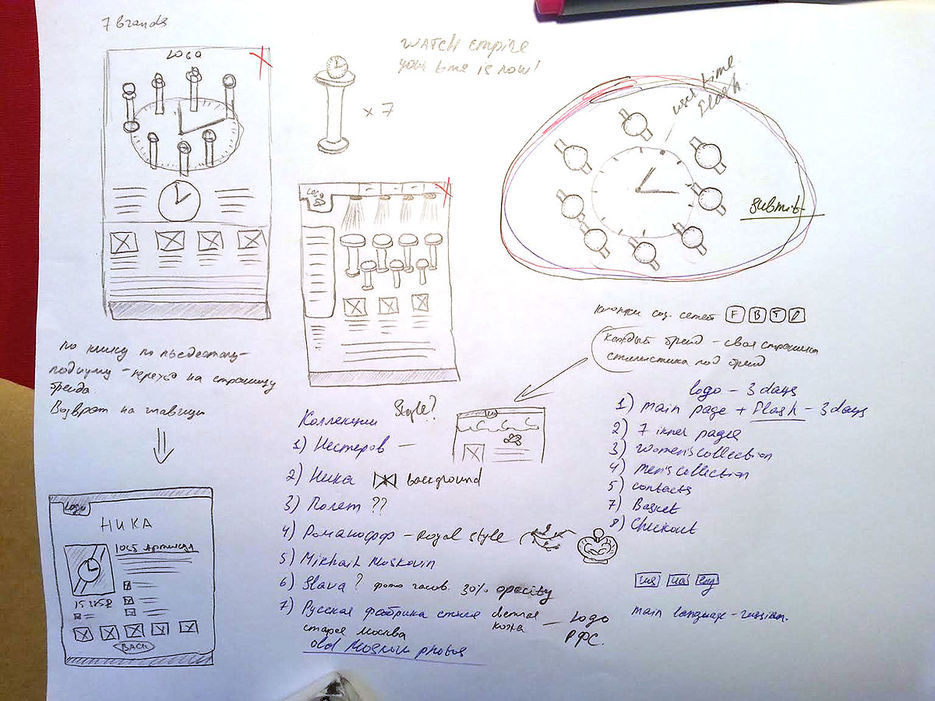 7 Brands
LOGO
WATCH empire
your time is now!
x 7
user time
Flash
submit
LOGO
кнопки соц. сетей F B T P
каждый бренд - своя страница
стилистика под бренд
по клику по пьедесталу-
подиуму - переход на страницу
бренда
Возврат на главную
logo - 3 days
1) main page + flash - 3 days
2) 7 inner pages
3) women's collection
4) men's collection
5) contacts
7) Basket
8) Checkout
Style?
Коллекции
1) Нестеров —
2) Ника background
3) Полет ??
4) Романофф - Royal style
5) Mikhail Moskovin
6) Slava ? фото часов. 30% opacity
7) Русская фабрика стиля светлая кожа — Logo РФС.
старая Москва
old Moskow photos
Logo
НИКА
BACK
rus ua eng
main language - russian.